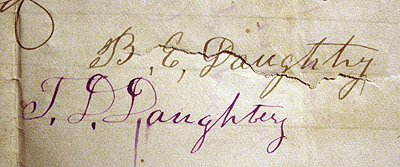 B. E. Daughtry
T. D. Daughtery